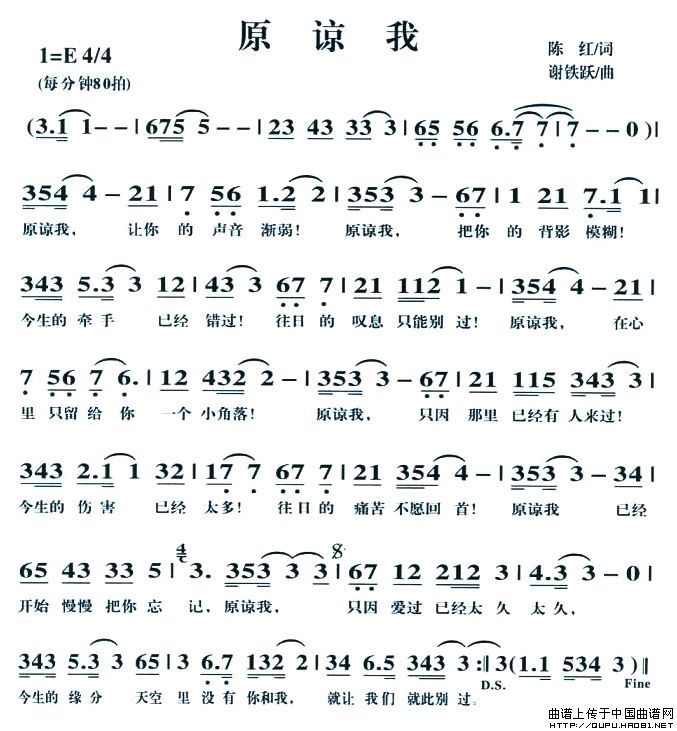 原谅我
1=E 4/4
(每分钟80拍)
陈 红/词
谢铁跃/曲
(3.1 1--|675 5--|23 43 33 3|65 56 6.7 7|7--0)|
354 4-21|7 56 1.2 2|353 3-67|1 21 7.1 1|
原谅我, 让你 的 声音 渐弱! 原谅我, 把你 的 背影 模糊!
343 5.3 3 12|43 3 67 7|21 112 1-|354 4-21|
今生的 牵手 已经 错过! 往日 的 叹息 只能别 过! 原谅我, 在心
7 56 7 6.|12 432 2-|353 3-67|21 115 343 3|
里 只留 给 你 一个 小角落! 原谅我, 只因 那里 已经有 人来过!
343 2.1 1 32|17 7 67 7|21 354 4-|353 3-34|
今生的 伤害 已经 太多! 往日 的 痛苦 不愿回 首! 原谅我 已经
65 43 33 5|3. 353 3 3|67 12 212 3|4.3 3-0|
开始 慢慢 把你 忘 记,原谅我, 只因 爱过 已经太 久 太久,
343 5.3 3 65|3 6.7 132 2|34 6.5 343 3:||3(1.1 534 3)||
今生的 缘分 天空 里 没有 你和我, 就让 我们 就此别 过。
D.S. Fine
曲谱上传于中国曲谱网
HTTP://QUPU.HAO81.NET